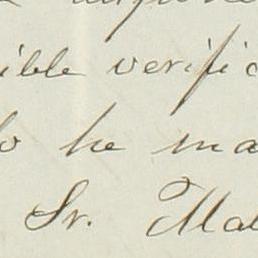 ible verific
o he ma
Sr. Mal